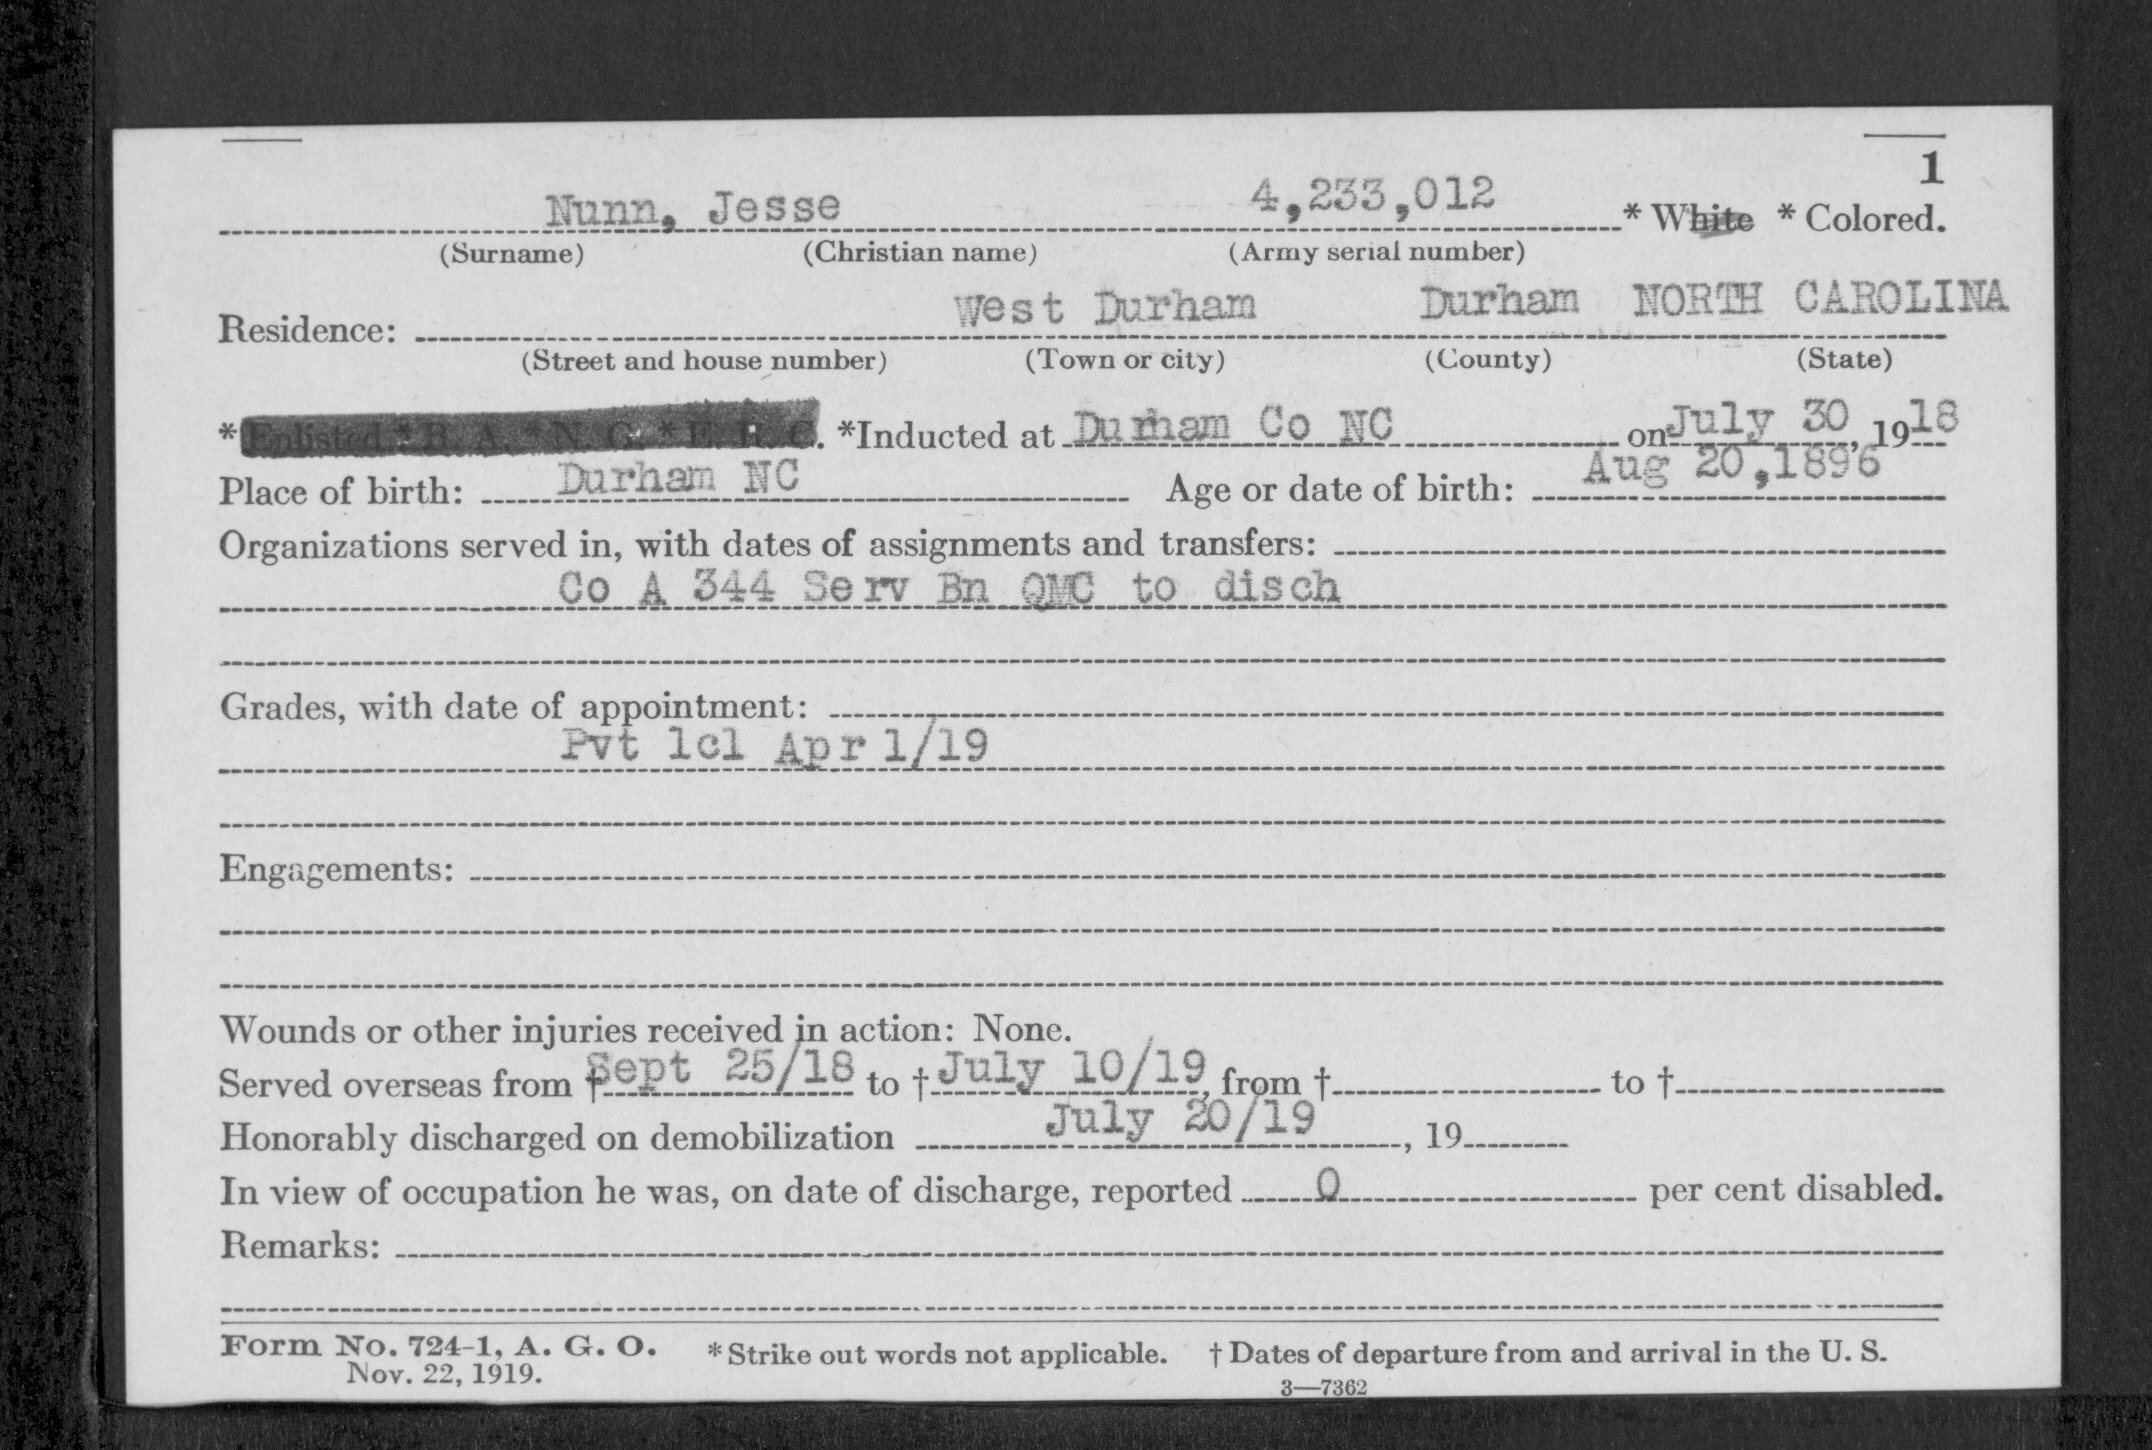 1
Nunn, Jesse 4,233,012 * White * Colored.
(Surname) (Christian name) (Army serial number)
Residence: West Durham Durham NORTH CAROLINA
(Street and house number) (Town or city) (County) (State)
* Enlisted * R. A. * N. G. * E. R. C. *Inducted at Durham Co NC on July 30, 1918
Place of birth: Durham NC Age or date of birth: Aug 20,1896
Organizations served in, with dates of assignments and transfers:
Co A 344 Serv Bn QMC to disch
Grades, with date of appointment:
Pvt 1cl Apr 1/19
Engagements:
Wounds or other injuries received in action: None.
Served overseas from † Sept 25/18 to † July 10/19, from † to †
Honorably discharged on demobilization July 20/19, 19
In view of occupation he was, on date of discharge, reported 0 per cent disabled.
Remarks:
Form No. 724-1, A. G. O. * Strike out words not applicable. † Dates of departure from and arrival in the U. S.
Nov. 22, 1919.
3—7362